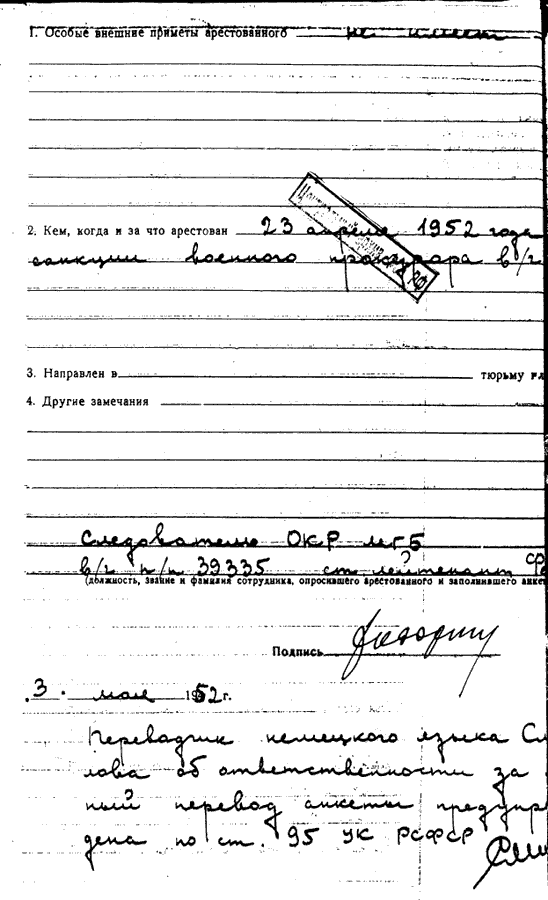 1. Особые внешние приметы арестованного не имеет
2. Кем, когда и за что арестован 23 апреля 1952 года
санкции военного прокурора в/г
3. Направлен в тюрьму
4. Другие замечания
Следователю ОКР МГБ
в/г п/п 39335 ст лейтенант
(должность, звание и фамилия сотрудника, опросившего арестованного и заполнившего анке
Подпись
3. мая 1952 г.
Переводчик немецкого языка С
лова об ответственности за
ный перевод анкеты предупр
дена по ст. 95 УК РСФСР